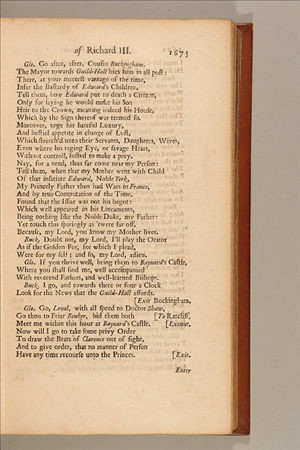 of Richard III. 1673
Glo. Go after, after, Cousin Buckingham.
The Mayor towards Guild-Hall hies him in all post:
There, at your meetest vantage of the time,
Infer the Bastardy of Edward's Children,
Tell them, how Edward put to death a Citizen,
Only for saying he would make his Son
Heir to the Crown, meaning indeed his House,
Which by the Sign thereof was termed so.
Moreover, urge his hateful Luxury,
And bestial appetite in change of Lust,
Which stretch'd unto their Servants, Daughters, Wives,
Even where his raging Eye, or savage Heart,
Without controll, lusted to make a prey.
Nay, for a need, thus far come near my Person:
Tell them, when that my Mother went with Child
Of that insatiate Edward, Noble York,
My Princely Father then had Wars in France,
And by true Computation of the Time,
Found that the Issue was not his begot:
Which well appeared in his Lineaments,
Being nothing like the Noble Duke, my Father:
Yet touch this sparingly as 'twere far off,
Because, my Lord, you know my Mother lives.
Buck. Doubt not, my Lord, I'll play the Orator
As if the Golden Fee, for which I plead,
Were for my self; and so, my Lord, adieu.
Glo. If you thrive well, bring them to Baynard's Castle,
Where you shall find me, well accompanied
With reverend Fathers, and well-learned Bishops.
Buck. I go, and towards three or four a Clock
Look for the News that the Guild-Hall affords.
[Exit Buckingham.
Glo. Go, Lovel, with all speed to Doctor Shaw,
Go thou to Frier Beuker, bid them both [To Ratcliff.
Meet me within this hour at Baynard's Castle. [Exeunt.
Now will I go to take some privy Order
To draw the Brats of Clarence out of sight,
And to give order, that no manner of Person
Have any time recourse unto the Princes. [Exit.
Enter